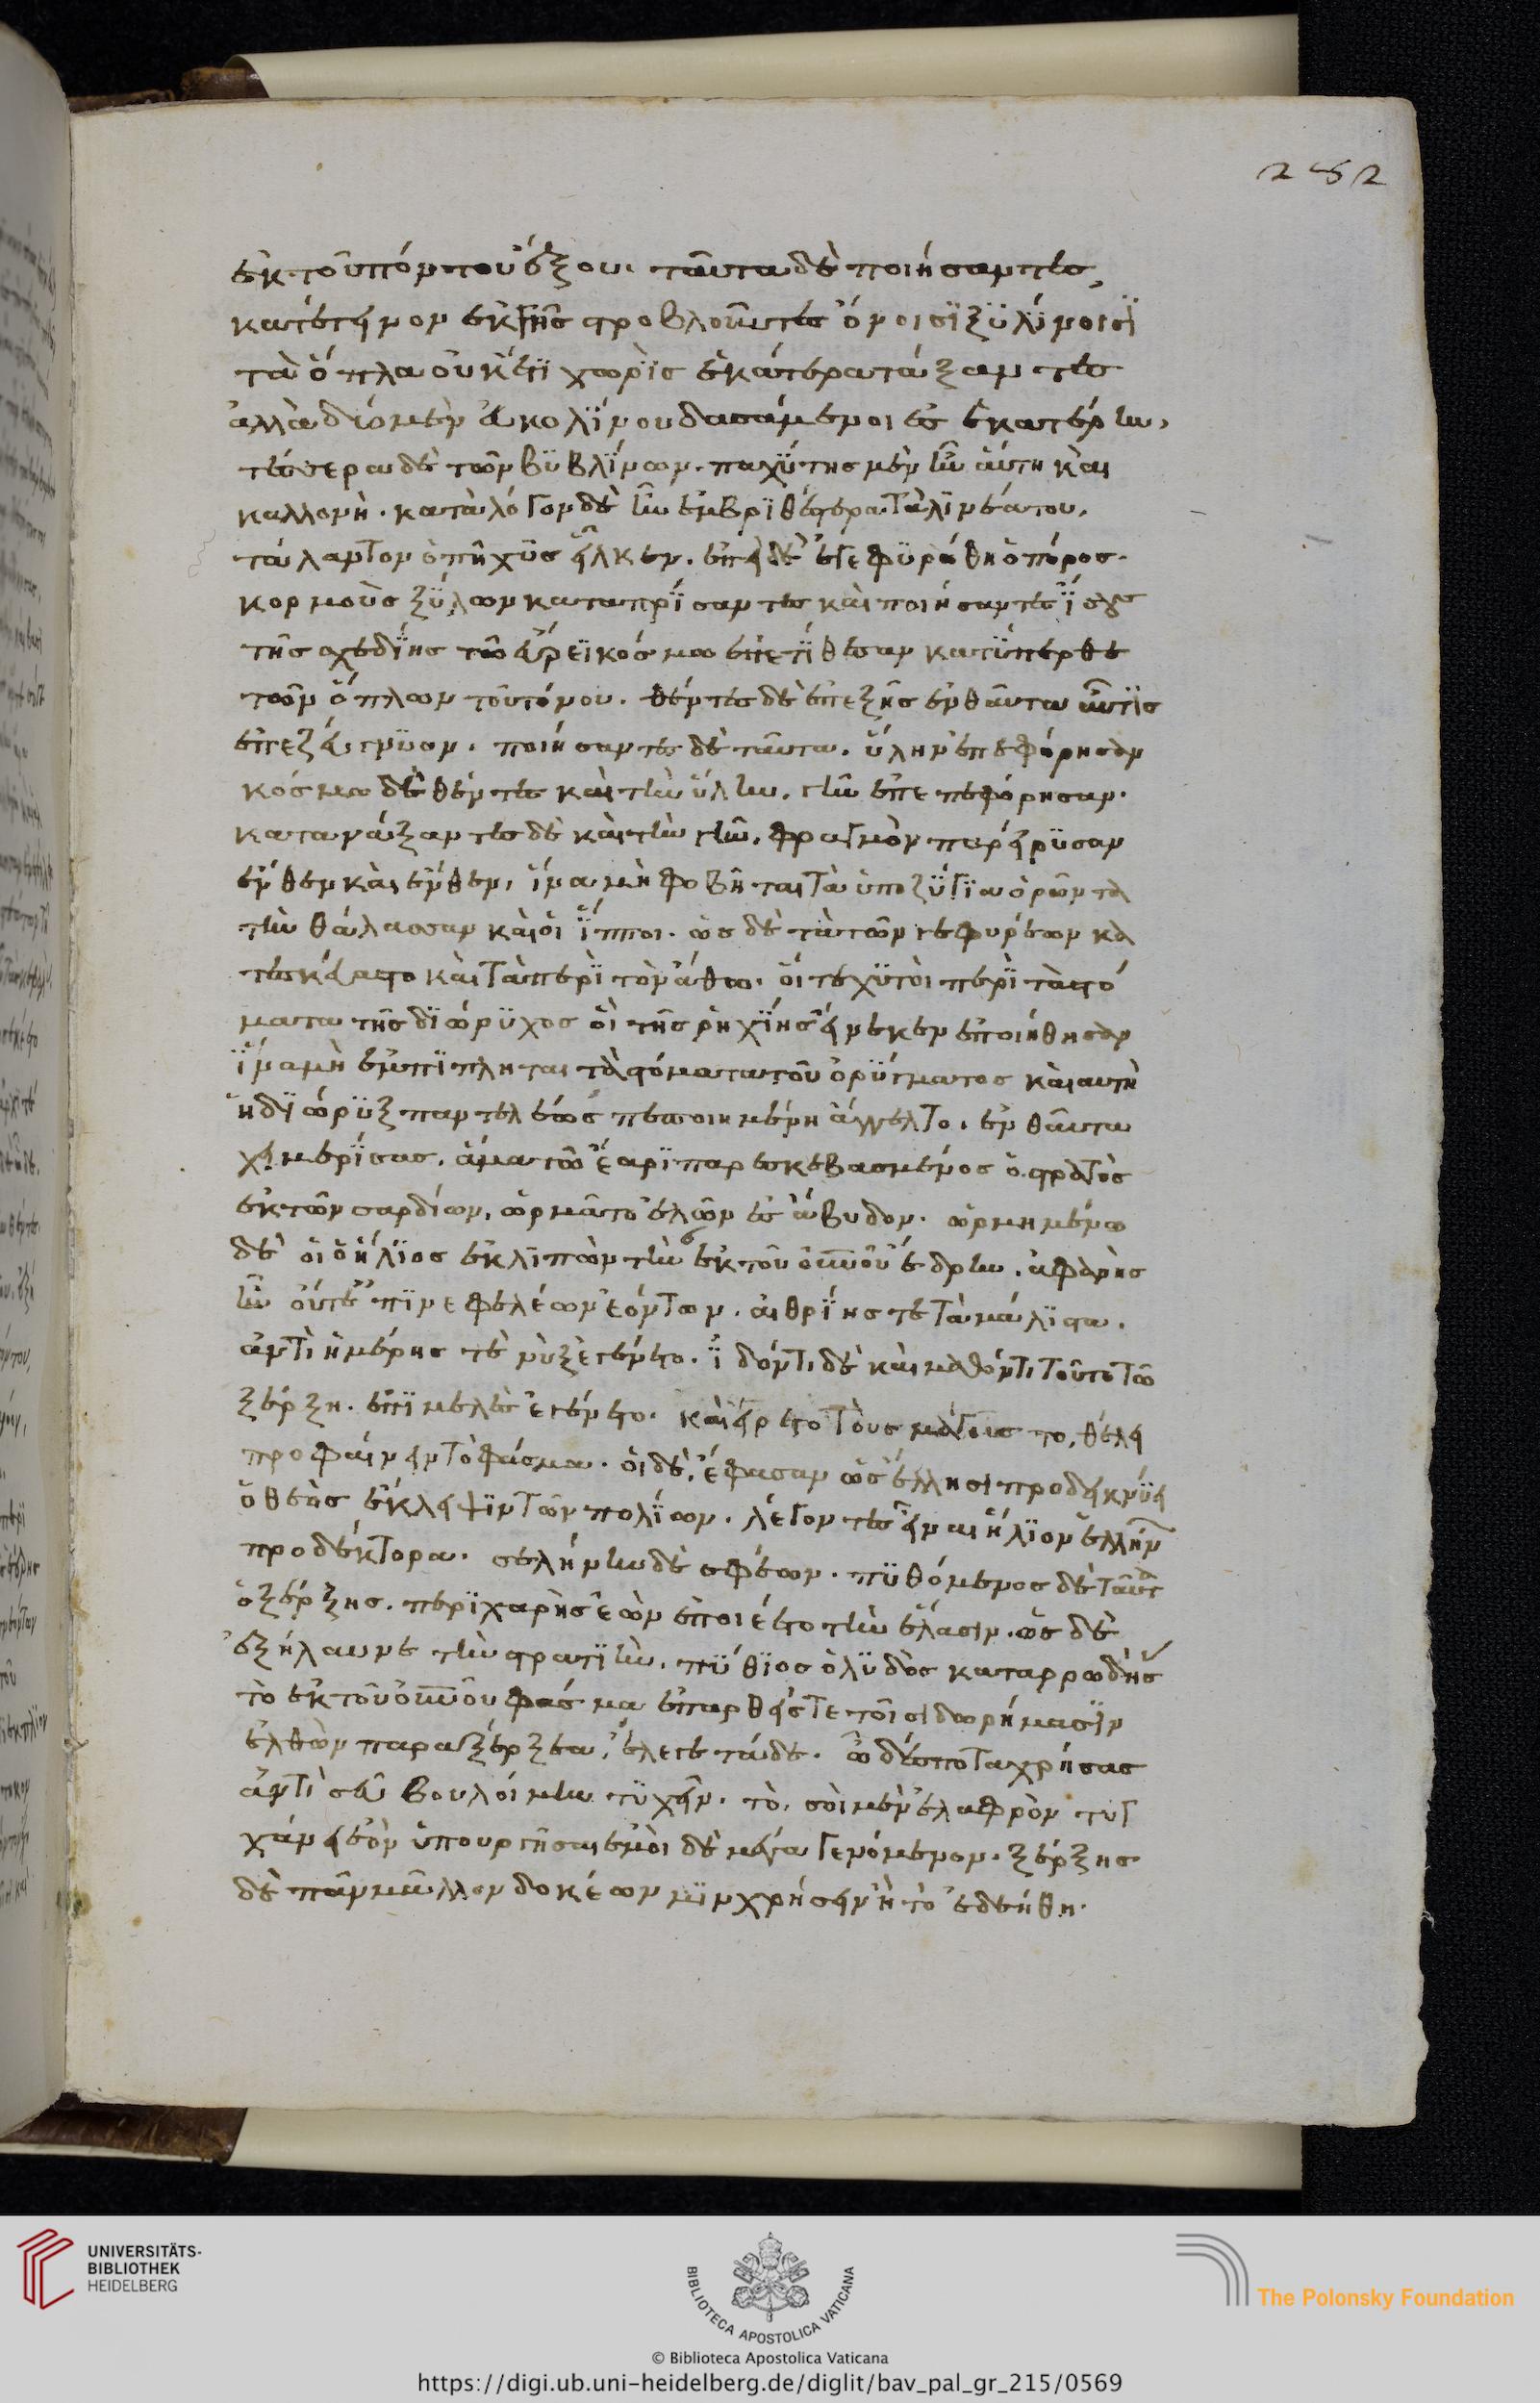 282
ἐκ τοῦ πόντου ἔξου. ταῦτα δὲ ποιήσαντες,
κατέτεινον ἐκ γῆς στρεβλοῦντες ὄνοισϊ ξϋλΐνοισϊ
τὰ ὅπλα οὐκέτϊ χωρὶς ἑκάτερα τάξαντες
ἀλλὰ δύο μὲν λευκολΐνου δασάμενοι ἐς ἑκατέρην,
τέσσερα δὲ τῶν βϋβλΐνων. παχΰτης μὲν ἦν αὐτὴ καὶ
καλλονὴ. κατὰ λόγον δὲ ἦν ἐμβρϊθέστερα τὰ λΐνεα του,
τάλαντον ὁ πῆχϋς εἷλκεν. ἐπεὶ δὲ ἐγεφϋρώθη ὁ πόρος.
κορμοὺς ξΰλων καταπρΐσαντες καὶ ποιήσαντες ΐσους
τῆς σχεδΐης τῶ εὔρεϊ κόσμω ἐπετΐθεσαν κατΰπερθε
τῶν ὅπλων τοῦ τόνου. θέντες δὲ ἐπεξῆς ἐνθαῦτα αὖτϊς
ἐπεζεύγνϋον. ποιήσαντες δὲ ταῦτα. ὕλην ἐπεφόρησαν
κόσμω δὲ θέντες καὶ τὴν ὕλην, γῆν ἐπεπεφόρησαν.
κατανάξαντες δὲ καὶ τὴν γῆν, φραγμὸν παρείρϋσαν
ἔνθεν καὶ ἔνθεν, ΐνα μὴ φοβῆται τὰ ὑποζΰγϊα ὁρῶντα
τὴν θάλασσαν καὶ οἱ ΐπποι. ὡς δὲ τὰ τῶν γεφυρέων κα
τεσκέαστο καὶ τὰ περὶ τὸν ἄθω. οἵ τε χϋτοὶ περὶ τὰ στό
ματα τῆς δϊώρϋχος οἳ τῆς ῥηχΐης εἵνεκεν ἐποιήθησαν
ΐνα μὴ ἐμπϊπληται τὰ στόματα τοῦ ὀρΰγματος καὶ αὐτὴ
ἡ δϊώρϋξ παντελέως πεποιημένη ἄγγελτο. ἐνθαῦτα
χειμερΐσας. ἅμα τῶ ἔαρϊ παρεσκεβασμένος ὁ στρατὸς
ἐκ τῶν σαρδίων, ὡρμᾶτο ἐλῶν ἐς ἄβυδον. ὡρμημένω
δέ οἱ ὁ ἥλϊος ἐκλϊπὼν τὴν ἐκ τοῦ οὐνοῦ ἕδρην. ἀφανὴς
ἦν οὔτ' ἐπϊνεφελέων ἐόντων. αἰθρΐης τε τὰ μάλϊστα.
ἀντὶ ἡμέρης τε νὺξ ἐγένετο. ΐδόντι δὲ καὶ μαθόντι τοῦτο τῶ
ξέρξη. ἐπϊμελὲς ἐγένετο. καὶ εἴρετο τοὺς μάγους το, θέλει
προφαίνειν τὸ φάσμα. οἱ δὲ, ἔφασαν ὡς ἕλλησι προδείκνϋει
ὁ θεὸς ἔκλειψϊν τῶν πολΐων. λέγοντες εἶναι ἥλϊον ἑλλήν
προδέκτορα. σελήνην δὲ σφέων. πϋθόμενος δὲ ταῦτα
ὁ ξέρξης. περϊχαρὴς ἐὼν ἐποιέετο τὴν ἔλασιν. ὡς δὲ
ἐξήλαυνε τὴν στρατϊὴν. πΰθϊος ὁ λϋδὸς καταρρωδήσας
τὸ ἐκ τοῦ οὐνοῦ φάσμα ἐπαρθείς τε τοῖσι δωρήμασϊν
ἐλθὼν παρὰ ξέρξεα, ἔλεγε τάδε. ὦ δέσποτα χρήσας
ἄν τι σεῦ βουλοίμην τϋχεῖν. τὸ, σοὶ μὲν ἐλαφρὸν τυγ
χάνει ἐὸν ὑπουργῆσαι ἐμοὶ δὲ μέγα γενόμενον. ξέρξης
δὲ πᾶν μᾶλλον δοκέων μϊν χρήσειν ἢ τὸ ἐδεήθη.
UNIVERSITÄTS-
BIBLIOTHEK
HEIDELBERG
BIBLIOTECA APOSTOLICA VATICANA
The Polonsky Foundation
© Biblioteca Apostolica Vaticana
https://digi.ub.uni-heidelberg.de/diglit/bav_pal_gr_215/0569